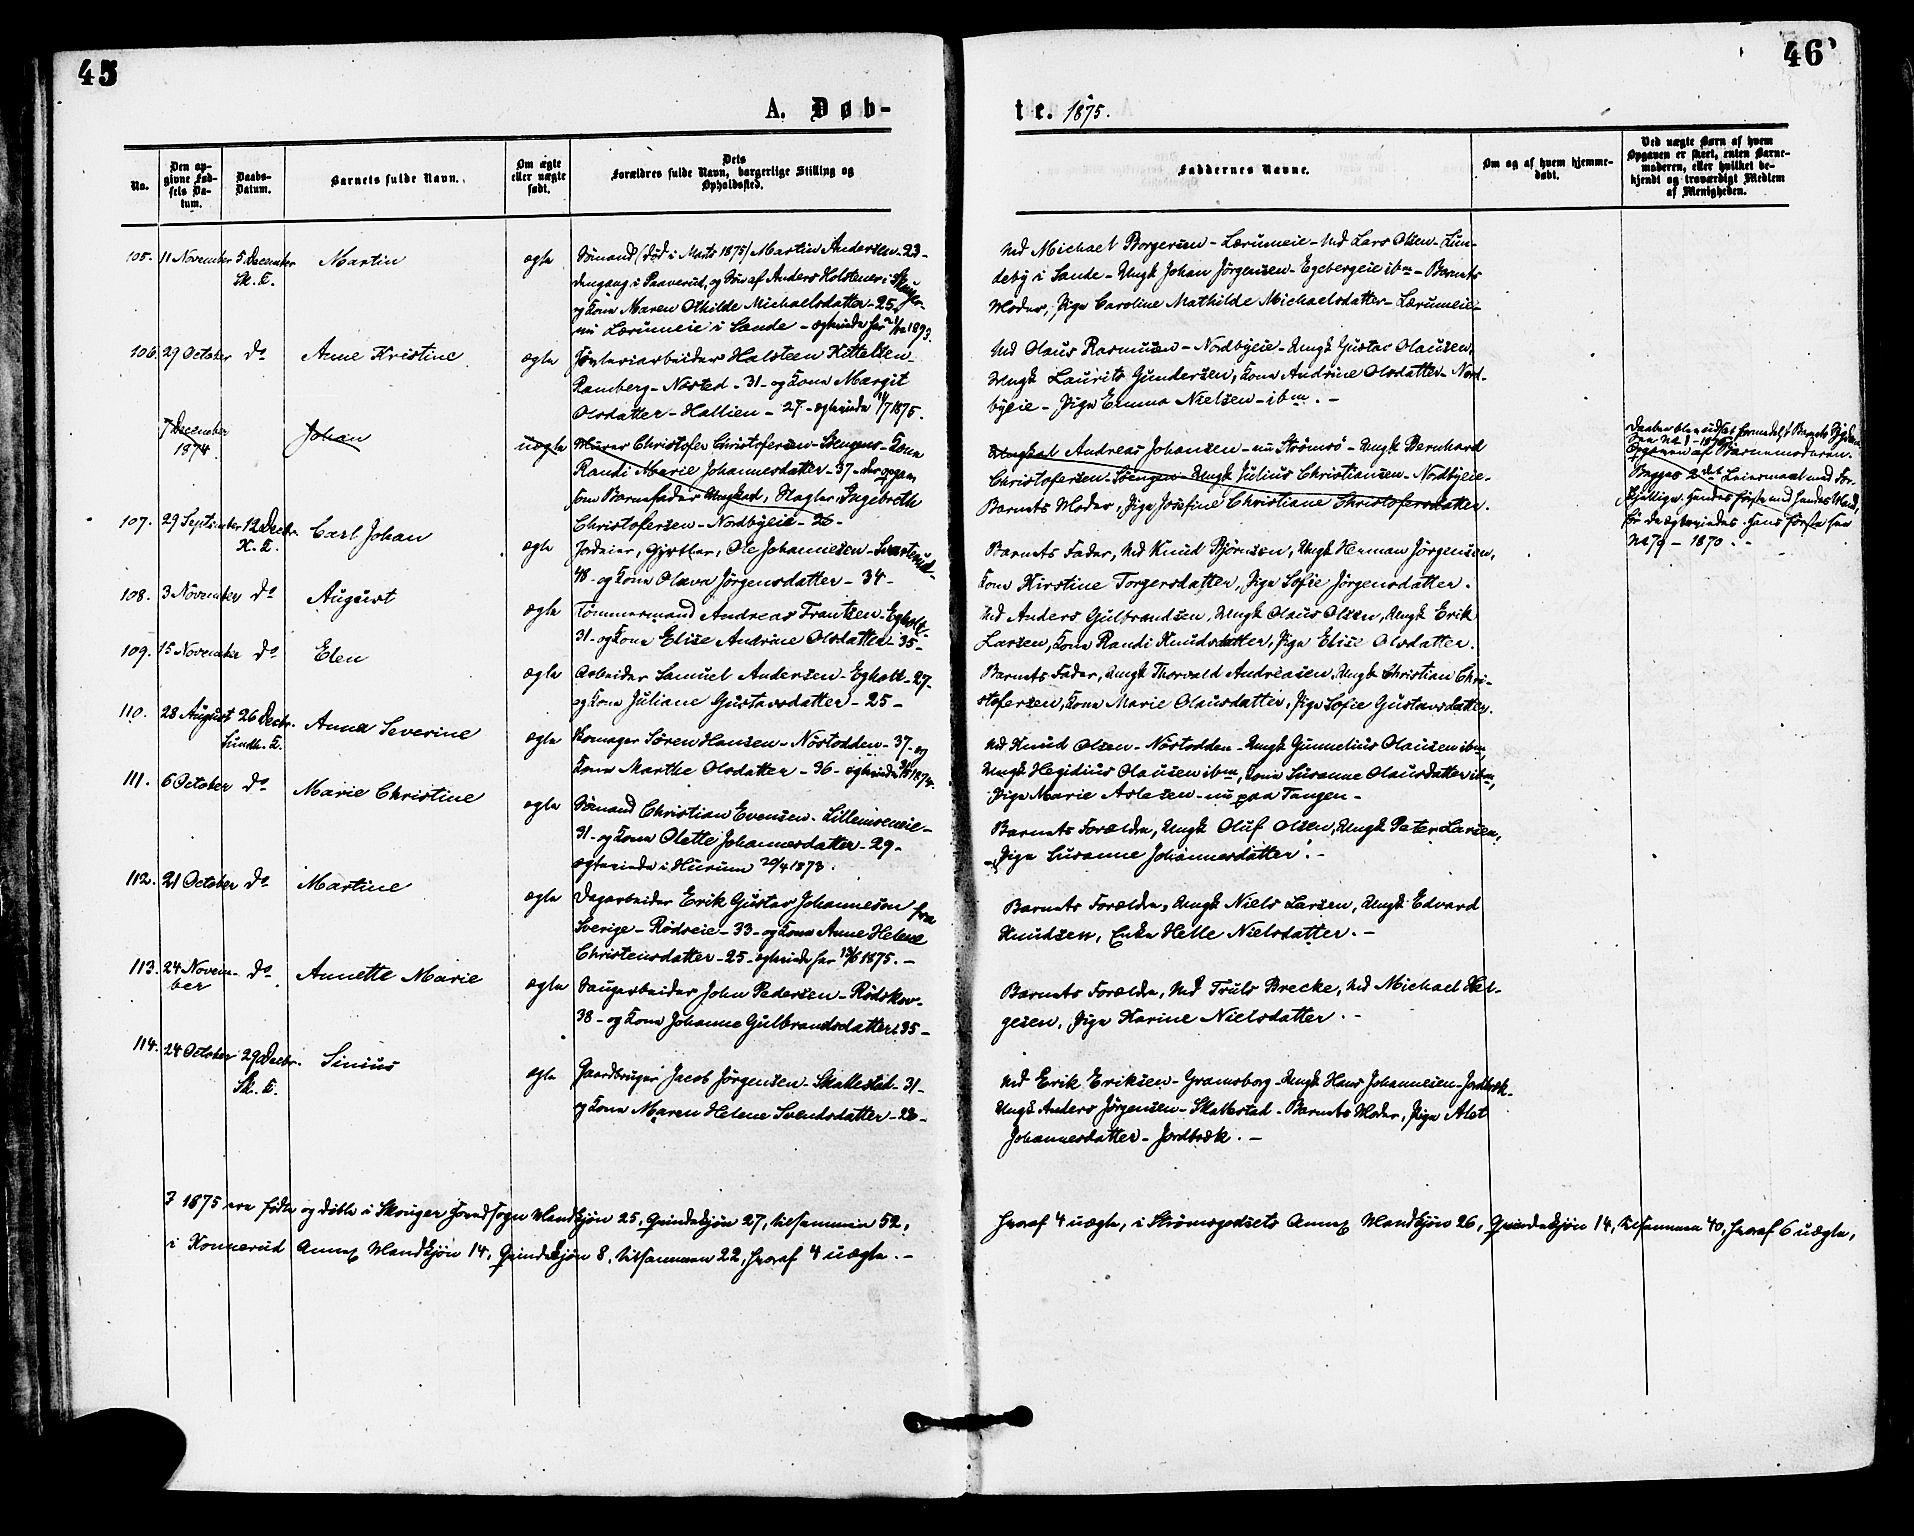 45
46
A. Døb-
te. 1875.
No.
Den op-
givne Fød-
sels Da-
tum.
Daabs-
Datum.
Barnets fulde Navn.
Om ægte
eller uægte
født.
Dets
Forældres fulde Navn, borgerlige Stilling og
Opholdssted.
Faddernes Navne.
Om og af hvem hjemme-
døbt.
Ved uægte Børn af hvem
Opgaven er skeet, enten Barne-
moderen, eller hvilket be-
kjendt og troværdigt Medlem
af Menigheden.
105. 11 November 5 December Martin ægte Sømand (død i Marts 1875) Martin Andersen - 23 -
Sk. K.
dengang i Paaverud, og Søn af Anders Holstener i Skouger
og Kone Maren Othilde Michaelsdatter - 25,
nu Lærumeie i Sande - ægteviede her 1893.
Md Michael Borgersen - Lærumeie - Md Lars Olsen - Lun-
deby i Sande - Ungk Johan Jørgensen - Egebergeie ibm - Barnets
Moder, Pige Caroline Mathilde Michaelsdatter - Lærumeie -
106. 29 October do Anne Kristine ægte Jernbanearbeider Halsteen Kittelsen -
Ramberg - Nøsted - 31 - og Kone Margit
Olsdatter - Hallien - 27 - ægteviede 11/7 1875.
Md Olaus Rasmusen - Nordbyeie - Ungk Gustav Olausen,
Ungk Laurits Gundersen, Kone Andrine Olsdatter - Nord-
byeie - Pige Emma Nielsen - ibm. -
7 December
1874.
Johan uægte Murer Christofer Christofersen - Stengens - Kone
Randi Marie Johannesdatter - 37 - der opgav
som Barnefader Ungkarl, Slagter Ingebreth
Christofersen - Nordbyeie - 26 -
Ungkarl Andreas Johansen - nu Strømsø - Ungk Bernhard
Christofersen - Stengen - Ungk Julius Christiansen - Nordbyeie -
Barnets Moder, Pige Josefine Christiane Christofersdatter.
Daaben blev udsat formedelst Barnets Sygdom.
See No 1 - 1875
Opgaven af Barnemoderen.
Begges 2det Leiermaal med For-
skjellige. Hendes første med hendes Mand,
før de ægteviedes. Hans første see
No 79 - 1870. -
107. 29 September 12 Decbr. Carl Johan ægte Jordeier, Gjørtler, Ole Johannesen - Svarterud -
K. K.
48 - og Kone Olava Jørgensdatter - 34 -
Barnets Fader, Md Knud Bjørnsen, Ungk Herman Jørgensen,
Kone Kirstine Torgersdatter, Pige Sofie Jørgensdatter.
108. 3 November do August ægte Tømmermand Andreas Frantsen - Egholt -
31 - og Kone Elise Andrine Olsdatter - 35 -
Md Anders Gulbrandsen, Ungk Olaus Olsen, Ungk Erik
Larsen, Kone Randi Knudsdatter, Pige Elise Olsdatter.
109. 15 November do Elen ægte Arbeider Samuel Andersen - Egholt - 27 -
og Kone Juliane Gustavsdatter - 25 -
Barnets Fader, Ungk Thorvald Andreasen, Ungk Christian Chri-
stofersen, Kone Marie Olausdatter, Pige Sofie Gustavsdatter.
110. 28 August 26 Decbr. Anna Severine ægte Skomager Søren Hansen - Nøstodden - 37 - og
Sundh. K.
Kone Marthe Olsdatter - 36 - ægteviede 1874.
Md Knud Olsen - Nøstodden - Ungk Gunnelius Olausen ibm,
Ungk Hegidius Olausen ibm, Kone Susanne Olausdatter ibm,
Pige Marie Aslesen - nu paa Tangen -
111. 6 October do Marie Christine ægte Sømand Christian Evensen - Lillemoeneie -
31 - og Kone Olette Johannesdatter - 29 -
ægteviede i Hurum 20/4 1873.
Barnets Forældre, Ungk Oluf Olsen, Ungk Peter Larsen,
Pige Susanne Johannesdatter. -
112. 21 October do Martine ægte Dagarbeider Erik Gustav Johannesen fra
Sverige - Rødseie - 33 - og Kone Anne Helene
Christensdatter - 25 - ægteviede her 13/5 1875. -
Barnets Forældre, Ungk Niels Larsen, Ungk Edvard
Knudsen, Enke Helle Nielsdatter. -
113. 24 Novem-
ber
do Annette Marie ægte Saugarbeider John Pedersen - Rødskov -
38 - og Kone Johanne Gulbrandsdatter - 35 -
Barnets Forældre, Md Truls Brecke, Md Michael Hel-
gesen, Pige Karine Nielsdatter. -
114. 24 October 29 Decbr. Sinius ægte Gaardbruger Jacob Jørgensen - Skallestad - 31 -
Sk. K.
og Kone Maren Helene Svendsdatter - 23 -
Md Erik Eriksen - Gramsborg - Ungk Hans Johannesen - Jordbræk -
Ungk Anders Jørgensen - Skallestad - Barnets Moder, Pige Alet
Johannesdatter - Jordbræk. -
I 1875 ere fødte og døbte i Skouger Hovedsogn Mandkjøn 25, Qvindekjøn 27, tilsammen 52,
hvoraf 4 uægte, i Strømsgodsets Annex Mandkjøn 26, Qvindekjøn 14, tilsammen 40, hvoraf 6 uægte,
i Konnerud Annex Mandkjøn 14, Qvindekjøn 8, tilsammen 22, hvoraf 4 uægte. -